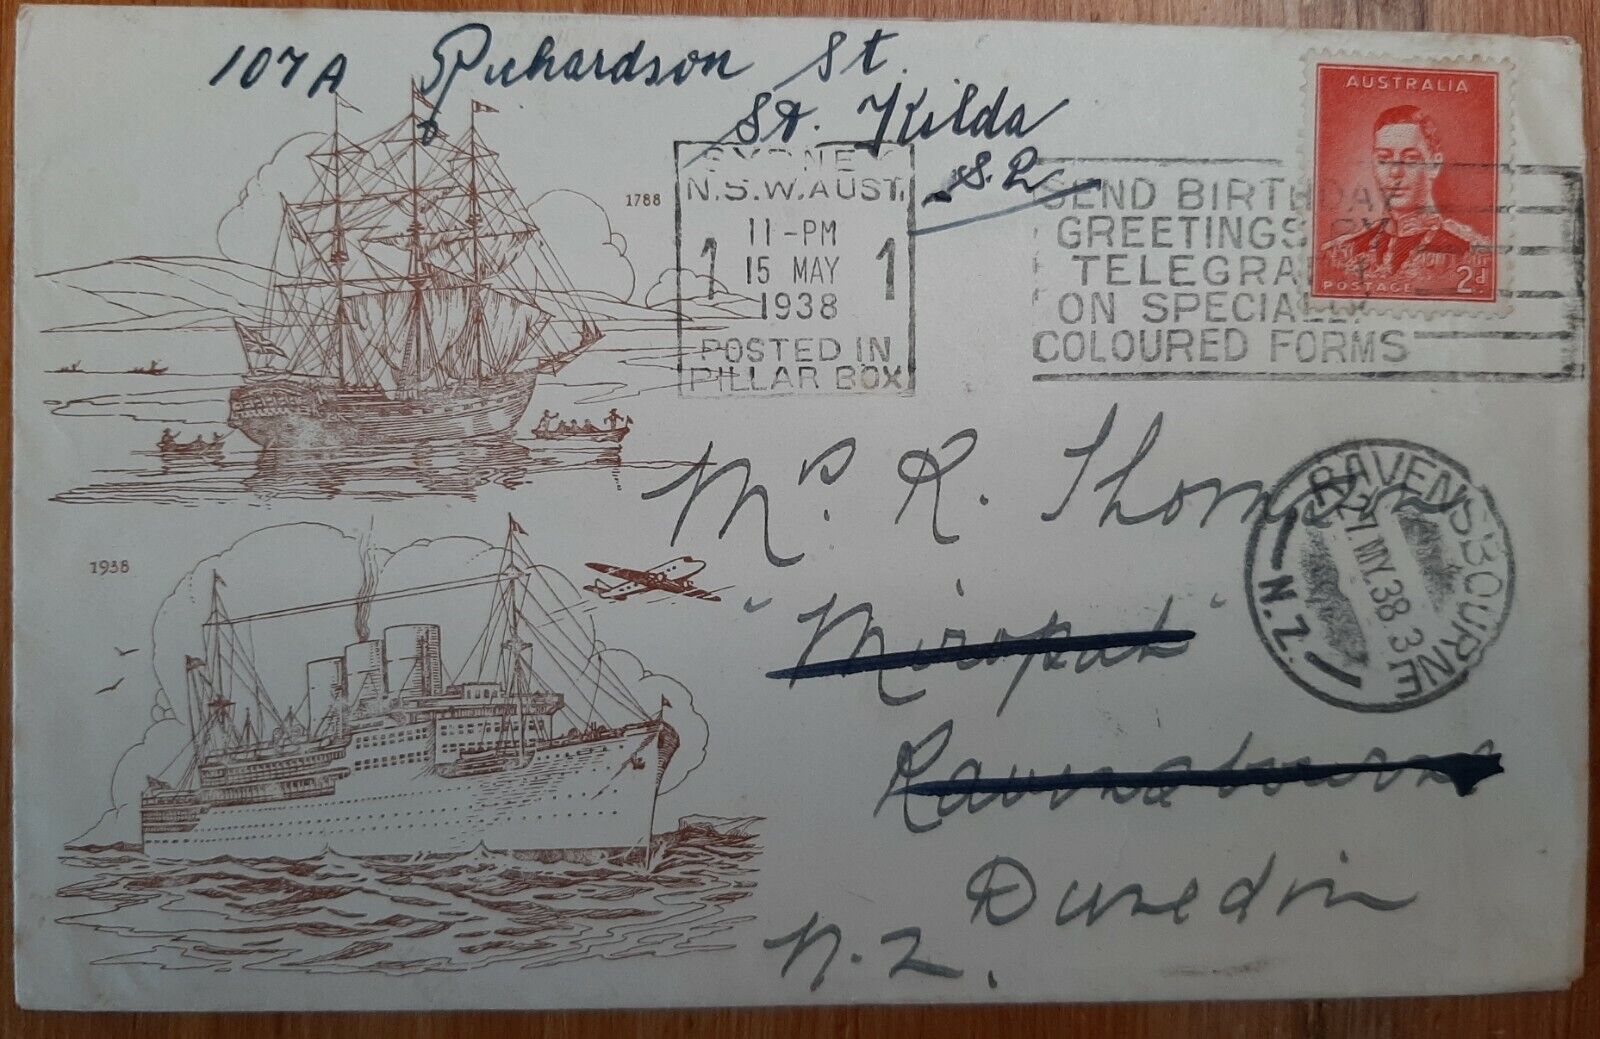 107A Richardson St.
St. Kilda
AUSTRALIA
SYDNEY
N.S.W. AUST.
11-PM
1 15 MAY 1
1938
POSTED IN
PILLAR BOX
SEND BIRTHDAY
GREETINGS BY
TELEGRAM
ON SPECIALLY
COLOURED FORMS
POSTAGE 2d.
1788
1938
R. Thomson
RAVENSBOURNE
MY.38 3
N.Z.
Ravensbourne
Dunedin
N.Z.